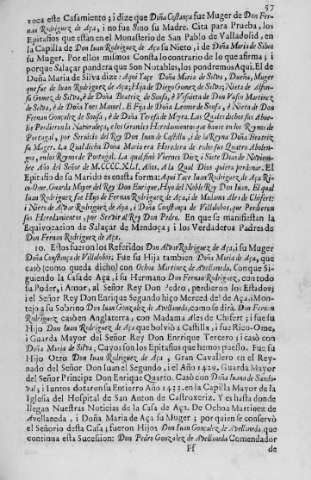 97
toca este Casamiento; i dize que Doña Costança fue Muger de Don Fer-
nan Rodriguez de Aça, i no fue Sino su Madre. Cita para Prueba, los
Epitafios que están en el Monasterio de San Pablo de Valladolid, en
la Capilla de Don Iuan Rodriguez de Aça su Nieto, i de Doña Maria de Silva
su Muger. Por ellos mismos Consta lo contrario de lo que afirma; i
porque Salaçar pondera que son Notables, los pondremos Aqui. El de
Doña Maria de Silva dize: Aqui Yaçe Doña Maria de Silva, Dueña, Muger
que fue de Iuan Rodriguez de Aça, Hija de Diego Gomez de Silva, Nieta de Alfon-
so Gomez de Silva, è de Doña Beatriz de Sousa, è Visnieta de Don Vasco Martinez
de Silva, è de Doña Ynes Manuel. E Fija de Doña Leonor de Sousa, è Nieta de Don
Fernan Gonçalez de Sousa, è de Doña Teresa de Meyra. Las Quales dichos sus Abue-
los Perdieron la Naturaleça, è los Grandes Heredamientos que havie en los Reynos
de Portugal, por Servicio del Rey Don Iuan de Castilla, è de la Reyna Doña Beatriz
su Muger. La Qual dicha Dona Maria era Heredera de todos sus Quatro Abolen-
gos, en los Reynos de Portugal. La qual finò Viernes Diez i Siete Dias de Noviem-
bre Año del Señor de M.CCCC.XLI. Años, A la Qual Dios quiera perdonar. El
Epitafio de su Marido es en esta forma: Aqui Yaçe Iuan Rodriguez de Aça Ri-
co-Ome, Guarda Mayor del Rey Don Enrique, Hijo del Noble Rey Don Iuan. El qual
Iuan Rodriguez fue Hijo de Fernan Rodriguez de Aça, è de Madama Ales de Chisfert:
i Nieto de Alvar Rodriguez de Aça, i de Doña Constança de Villalobos, que Perdieron
sus Heredamientos, por Servir al Rey Don Pedro. En que se manifiestan la
Equivocazion de Salaçar de Mendoça; i los Verdaderos Padres de
Don Fernan Rodriguez de Aça.
10. Estos fueron los Referidos Don Alvar Rodriguez de Aça, i su Muger
Doña Constança de Villalobos; Fue su Hija tambien Doña Maria de Aça, que
casò (como queda dicho) con Ochoa Martinez de Avellaneda. Conque Si-
guiendo la Casa de Aça, i su Hermano Don Fernan Rodriguez, con todo
su Poder, i Amor, al Señor Rey Don Pedro, perdieron los Estados;
i el Señor Rey Don Enrique Segundo hiço Merced del de Aça, i Mon-
tejo a su Sobrino Don Iuan Gonçalez de Avellaneda, como se dirà. Don Fernan
Rodriguez casò en Anglaterra, con Madama Ales de Chisfert; i fue su
Hijo Don Iuan Rodriguez de Aça que bolviò a Castilla, i fue Rico-Ome,
i Guarda Mayor del Señor Rey Don Enrique Tercero; i casò con
Doña Maria de Silva, Cuyos son los Epitafios que hemos puesto. Fue su
Hijo Otro Don Iuan Rodriguez de Aça, Gran Cavallero en el Rey-
nado del Señor Don Iuan el Segundo, i el Año 1429. Guarda Mayor
del Señor Principe Don Enrique Quarto. Casò con Doña Iuana de Sando-
val; i Iuntos dotaron su Entierro Año 1433. en la Capilla Mayor de la
Iglesia del Hospital de San Anton de Castroxeriz. Y es hasta donde
llegan Nuestras Noticias de la Casa de Aça. De Ochoa Martinez de
Avellaneda, i Doña Maria de Aça su Muger; por quien se conservò
el Señorio desta Casa; fueron Hijos Don Iuan Gonçalez de Avellaneda que
continua esta Sucesion: Don Pedro Gonçalez de Avellaneda Comendador
Ff de